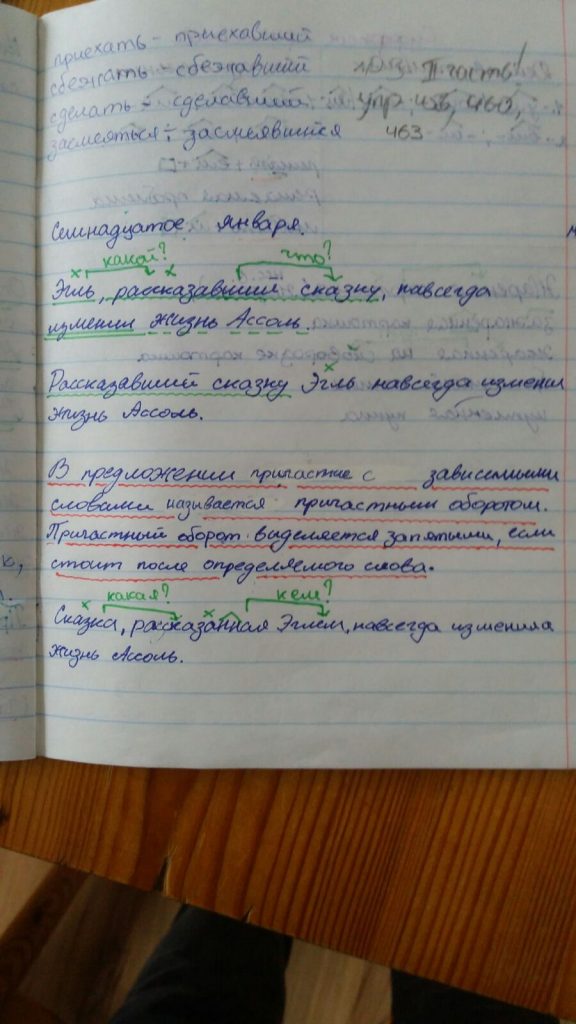 приехать - приехавший
сбежать - сбежавший
сделать - сделавший
засмеяться - засмеявшийся
II часть!
упр 456, 460,
463
Семнадцатое января.
какой? что?
Эгль, рассказавший сказку, навсегда
изменил жизнь Ассоль.
Рассказавший сказку Эгль навсегда изменил
жизнь Ассоль.
В предложении причастие с зависимыми
словами называется причастным оборотом.
Причастный оборот выделяется запятыми, если
стоит после определяемого слова.
какая? кем?
Сказка, рассказанная Эглем, навсегда изменила
жизнь Ассоль.